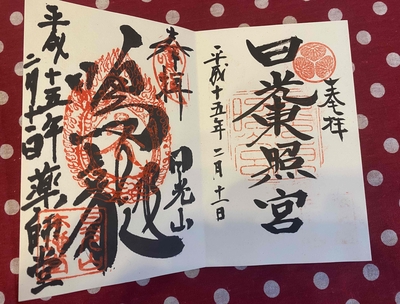 奉拝
日光東照宮
平成十五年二月十一日
奉拝
日光山
鳴龍
平成十五年二月十一日
薬師堂